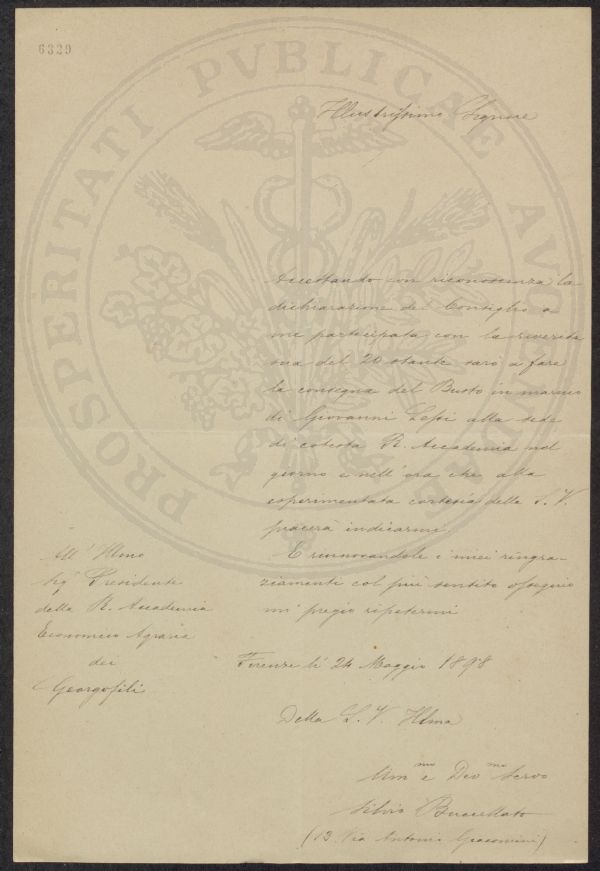 6329
PROSPERITATI PVBLICAE AVGENDAE
Illustrissimo Signore
Accettando con riconoscenza la
dichiarazione del Consiglio a
me partecipata con la riverita
sua del 20 stante sarò a fare
la consegna del Busto in marmo
di Giovanni alla sede
di cotesta R. Accademia nel
giorno e nell' ora che alla
esperimentata cortesia della S. V.
piacerà indicarmi
E rinnovandole i miei ringra-
ziamenti col più sentito ossequio
mi pregio ripetermi
All' Illmo
Sigr Presidente
della R. Accademia
Economico Agraria
dei
Georgofili
Firenze li 24 Maggio 1898
Della S. V. Illma
Ummo e Devmo Servo
Silvio
(13 Via Antonio Giacomini)